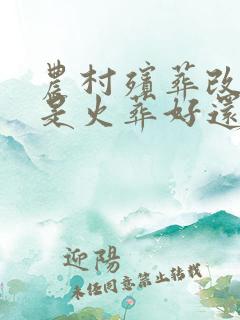 農村殯葬改
是火葬好還
迎陽
未经同意禁止转载